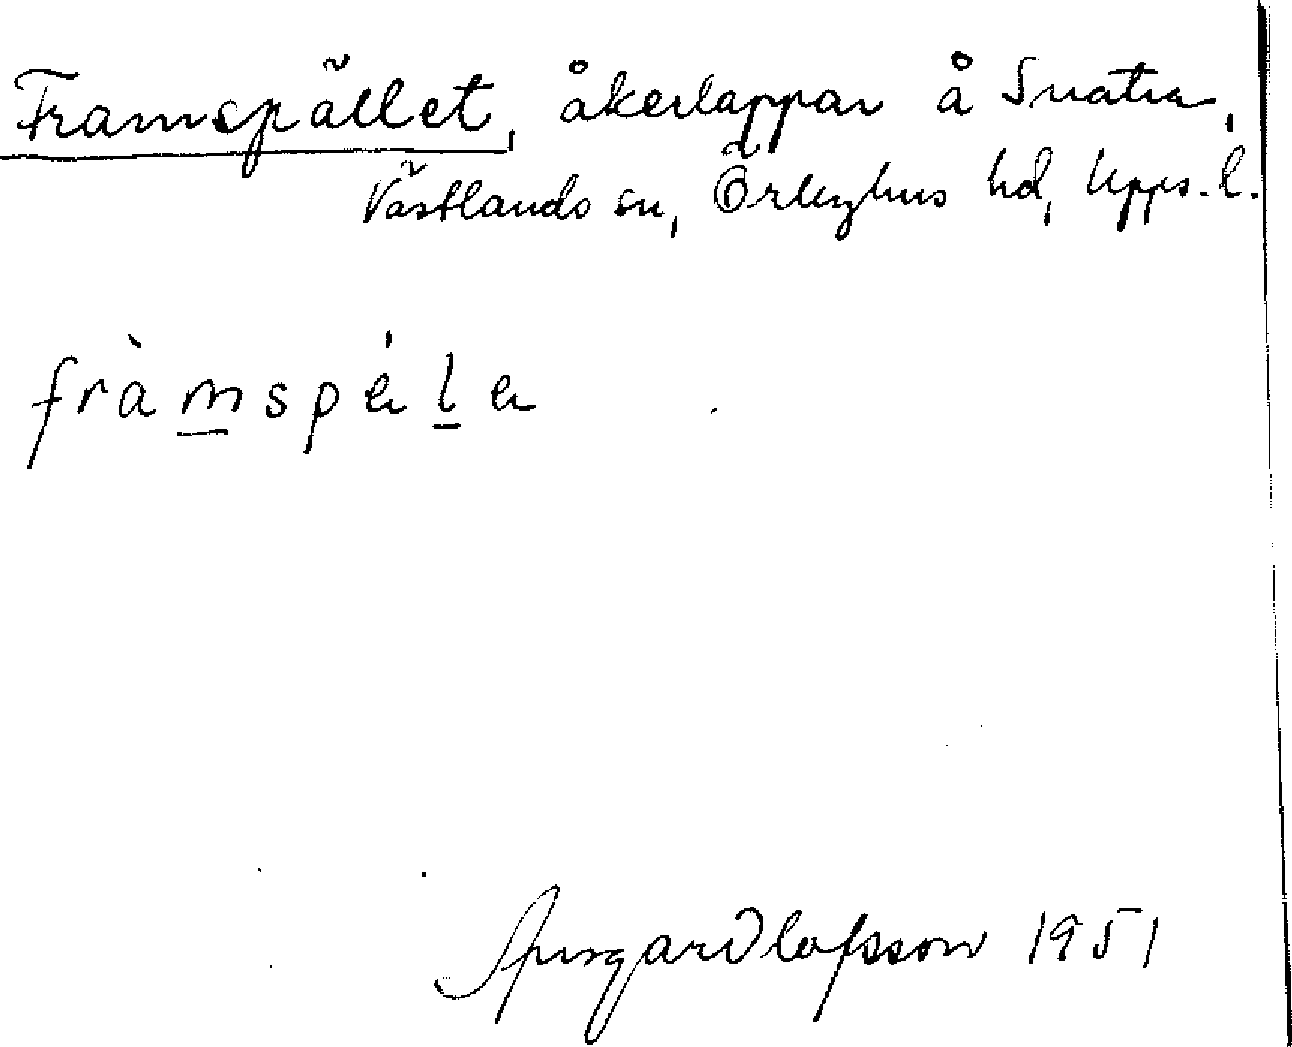 Framspället, åkerlappar å Snatra,
Västlands sn, Örbyhus hd, Upps. l.
fràmspélẹ
Olofsson 1951